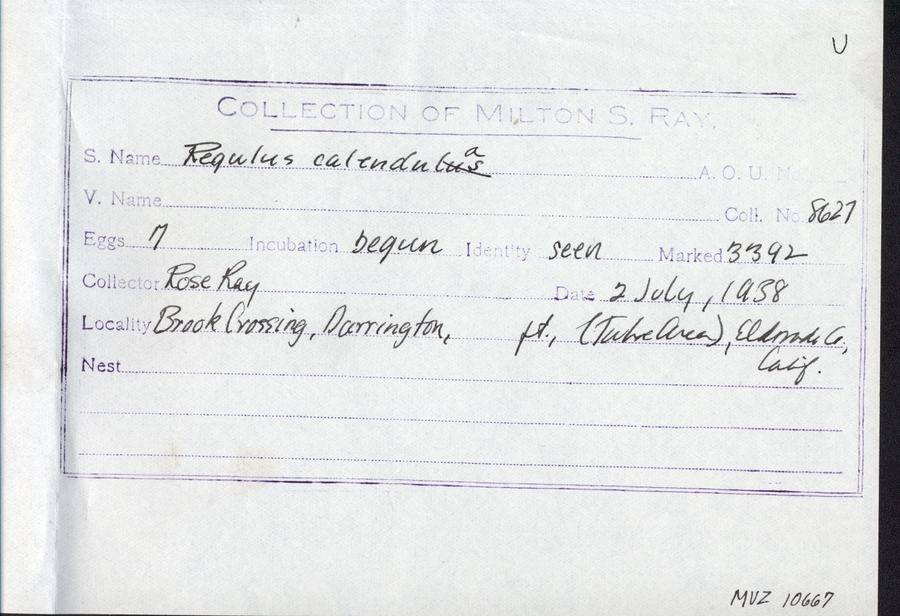 U
COLLECTION OF MILTON S. RAY.
S. Name Regulus calendulus a A. O. U. No.
V. Name Coll. No. 8627
Eggs 7 Incubation begun Identity seen Marked 3392
Collector Rose Ray Date 2 July, 1938
Locality Brook Crossing, Darrington, ft., (Tahoe Area), Eldorado Co,
Calif.
Nest
MVZ 10667